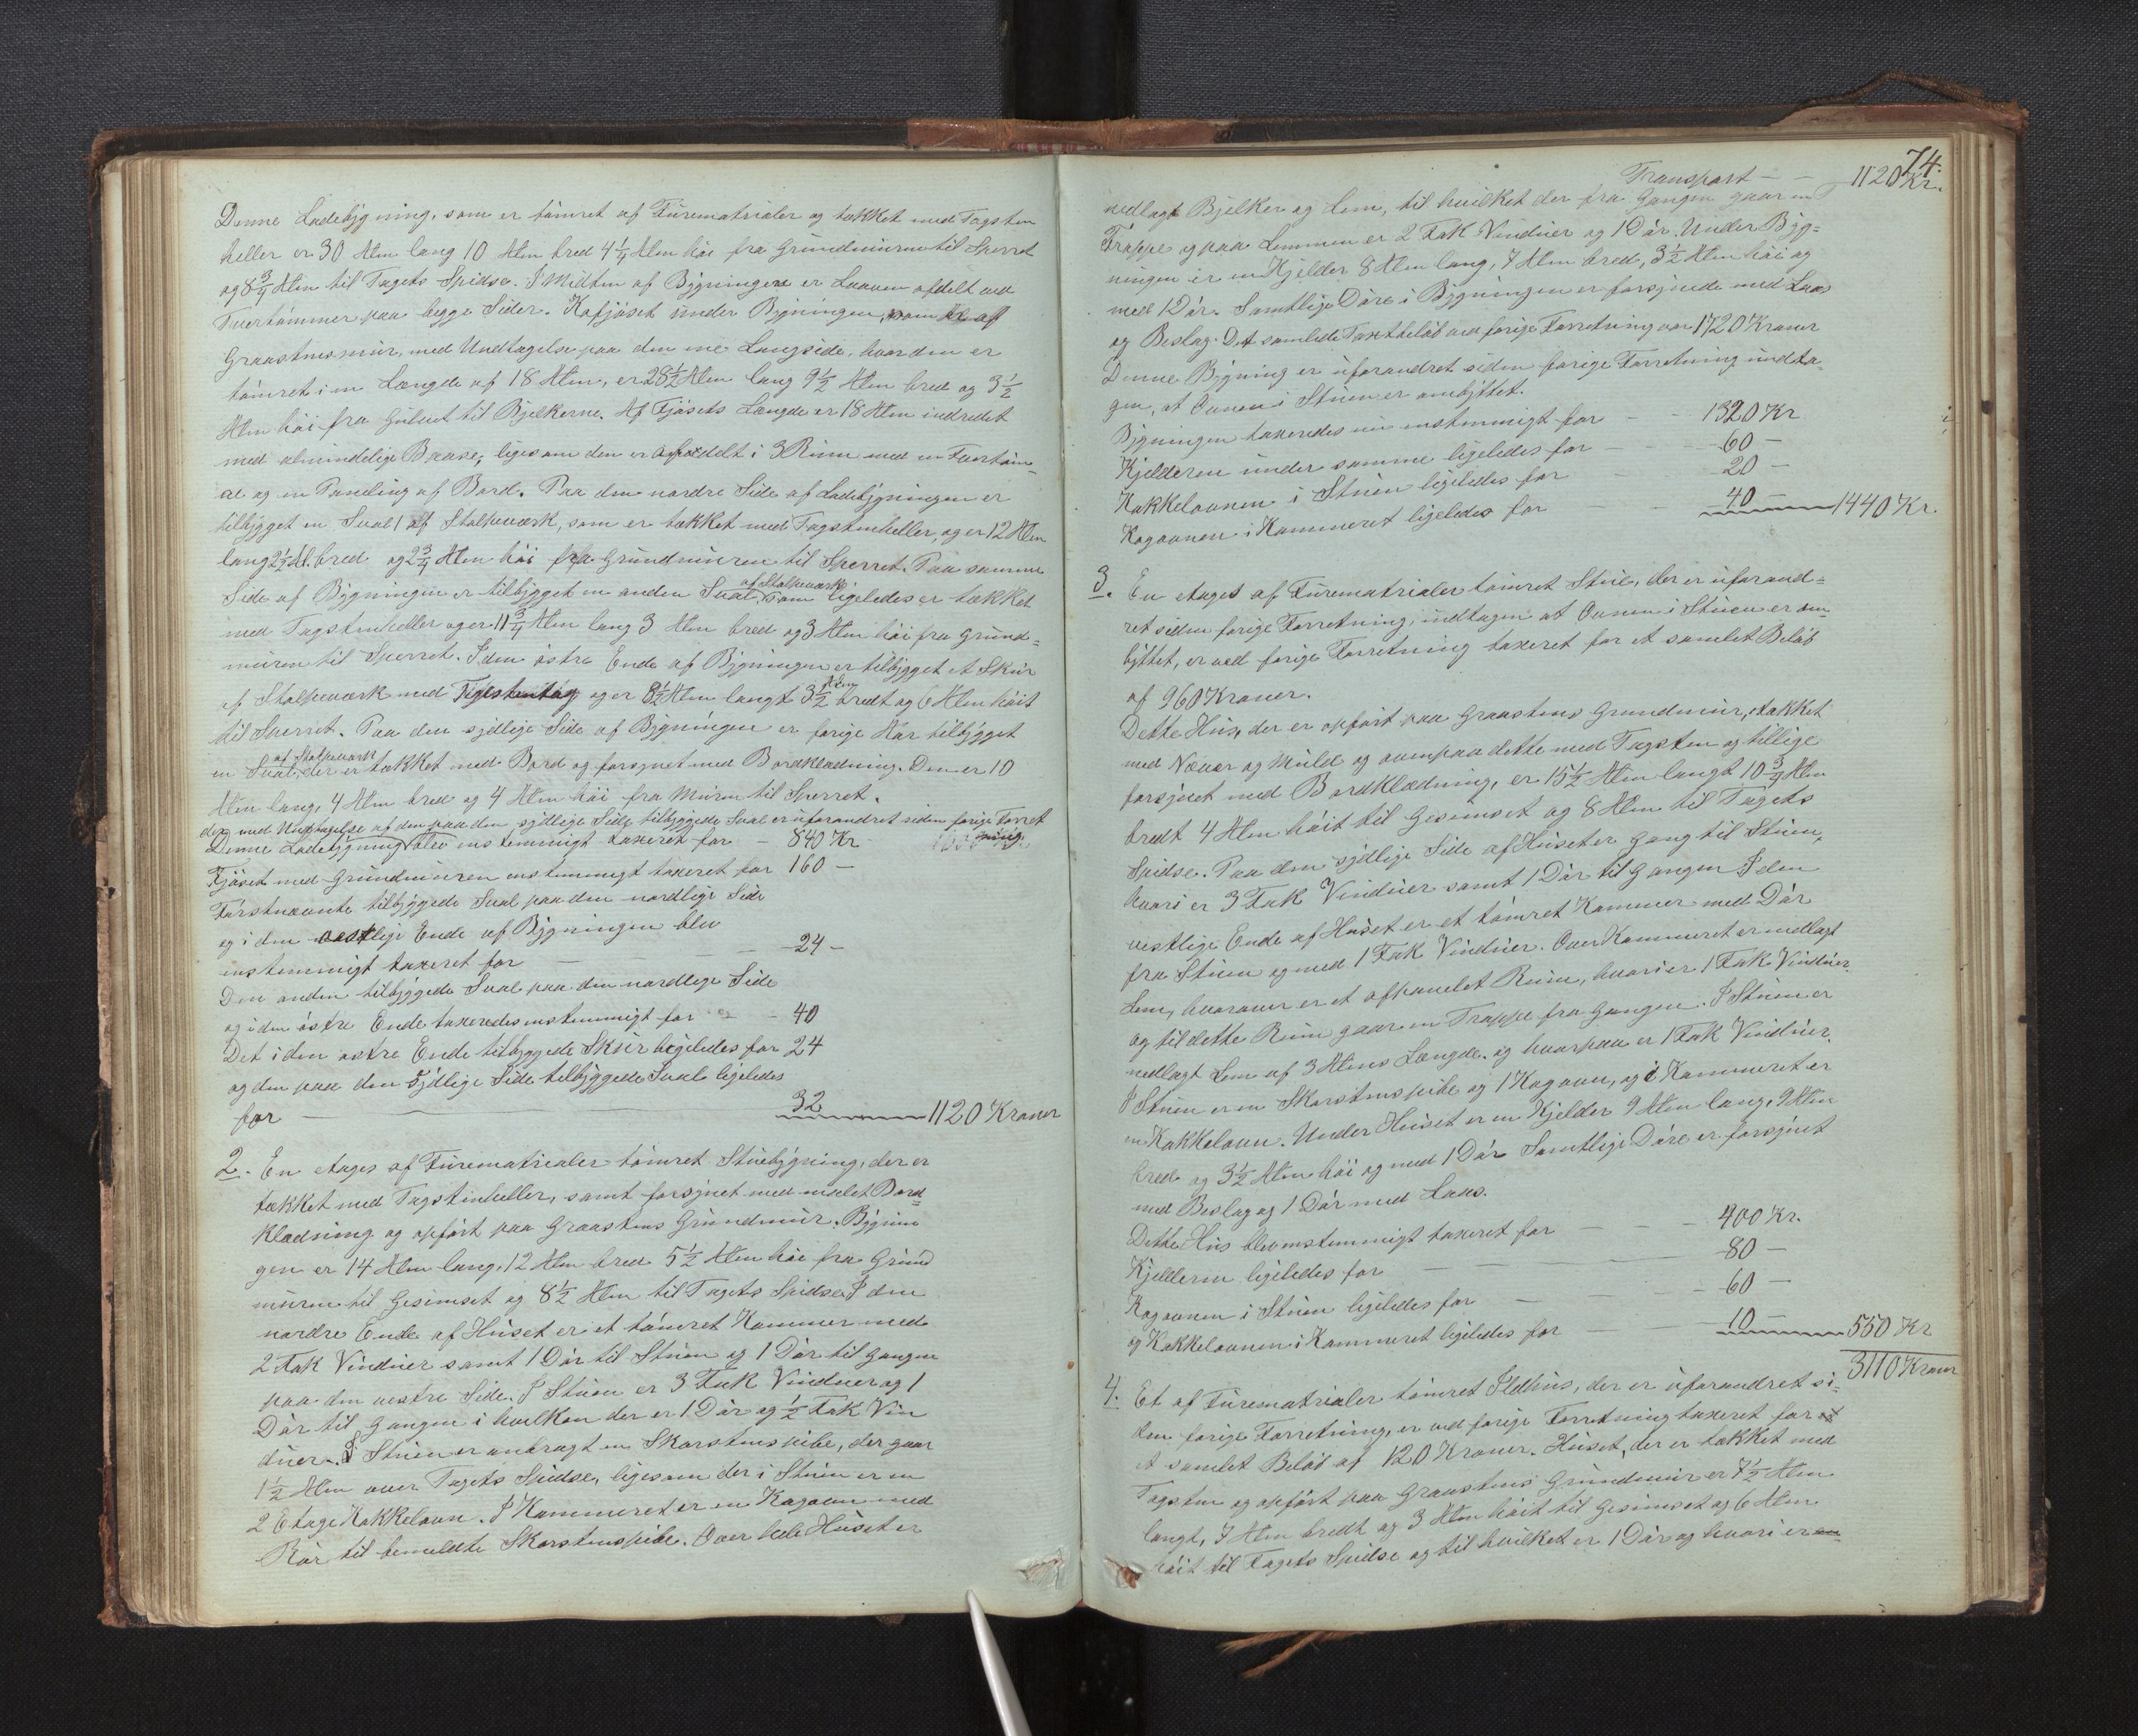 Denne Ladebygning, som er tömret af Furematrialer og tækket med Tagsten
heller er 30 Alen lang 10 Alen bred 4 1/4 Alen høi fra Grundmuren til Sperret
og 8 3/4 Alen til Tagets Spidse. I Midten af Bygningen er Laaven afdelt ved
Tvertömmer paa begge Sider. Kofjöset under Bygningen, som er af
Graastensmur, med Undtagelse paa den ene Langside, hvor den er
tömret i en Længde af 18 Alen, er 28 1/2 Alen lang 9 1/2 Alen bred og 3 1/2
Alen höi fra Gulvet til Bjelkerne. Af Fjösets Længde er 18 Alen indredet
med almindelige Baase, ligesom den er afdelt i 3 Rum med en Tvertöm-
re og en Paneling af Bord. Paa den nordre Side af Ladebygningen er
tilbygget en Sval af Stolpeværk, som er tækket med Tagstenheller, og er 12 Alen
lang 2 1/2 Al. bred og 2 3/4 Alen höi fra Grundmuren til Sperret. Paa samme
Side af Bygningen er tilbygget en anden Sval af Stolpeværk, som ligeledes er tækket
med Tagstenheller og er 11 3/4 Alen lang 3 Alen bred og 3 Alen höi fra Grund=
muren til Sperret. I den östre Ende af Bygningen er tilbygget et Skur
af Stolpeværk med Tagstentag og er 8 1/2 Alen langt 3 1/2 Alen bredt og 6 Alen höit
til Sperret. Paa den sydlige Side af Bygningen er forige Aar tilbygget
en Sval af Stolpeværk, der er tækket med Bord og forsynet med Bordklædning. Den er 10
Alen lang, 4 Alen bred og 4 Alen höi fra Muren til Sperret.
der med Undtagelse af den paa den sydlige Side tilbyggede Sval er uforandret siden forige Forret
ning
Denne Ladebygning blev enstemmigt taxeret for - 840 Kr
Fjöset med Grundmuren enstemmigt taxeret for 160 -
Förstnævnte tilbyggede Sval paa den nordlige Side
og i den vestlige Ende af Bygningen blev
enstemmigt taxeret for - - - - 24 -
Den anden tilbyggede Sval paa den nordlige Side
og i den östre Ende taxeredes enstemmigt for - - 40
Det i den östre Ende tilbyggede Skur ligeledes for 24
og den paa den sydlige Side tilbyggede Sval ligeledes
for - 32 1120 Kroner
2. En etages af Furematrialer tömret Stuebygning, der er
tækket med Tagstenheller, samt forsynet med malet Bord
klædning og opfört paa Graastens Grundmur. Bygnin
gen er 14 Alen lang, 12 Alen bred 5 1/2 Alen höi fra Grund
muren til Gesimset og 8 1/2 Alen til Tagets Spidse. I den
nordre Ende af Huset er et tömret Kammer med
2 Fak Vinduer samt 1 Dör til Stuen og 1 Dör til Gangen
paa den vestre Side. I Stuen er 3 Fak Vinduer og 1
Dör til Gangen i hvilken der er 1 Dör og 1/2 Fak Vin
duer. I Stuen er anbragt en Skorstenspibe, der gaar
1 1/2 Alen over Tagets Spidse, ligesom der i Stuen er en
2 Etage Kakkelovn. I Kammeret er en Kogovn med
Rör til bemeldte Skorstenspibe. Over hele Huset er
74.
Transport - - 1120 Kr.
nedlagt Bjelker og Lem, til hvilket der fra Gangen gaar en
Trappe og paa Lemmen er 2 Fak Vinduer og 1 Dör. Under Byg=
ningen er en Kjelder 8 Alen lang, 7 Alen bred, 3 1/2 Alen höi og
med 1 Dör. Samtlige Döre i Bygningen er forsynede med Laas
og Beslag. Det samlede Taxtbelöb ved forige Forretning var 1720 Kroner
Denne Bygning er uforandret siden forige Forretning undta-
gen, at Ovnen i Stuen er ombyttet.
Bygningen taxeredes nu enstemmigt for - - 1320 Kr
Kjelderen under samme ligeledes for - - 60 -
Kakkelovnen i Stuen ligeledes for - - 20 -
Kogovnen i Kammeret ligeledes for - - 40 - 1440 Kr.
3. En etages af Furematrialer tömret Stue, der er uforand=
ret siden forige Forretning, undtagen at Ovnen i Stuen er om
byttet, er ved forige Forretning taxeret for et samlet Belöb
af 960 Kroner.
Dette Hus, der er opfört paa Graastens Grundmur, tækket
med Næver og Muld og ovenpaa dette med Tagsten og tillige
forsynet med Bordklædning, er 15 1/2 Alen langt 10 3/4 Alen
bredt 4 Alen höit til Gesimset og 8 Alen til Tagets
Spidse. Paa den sydlige Side af Huset er Gang til Stuen,
hvori er 3 Fak Vinduer samt 1 Dör til Gangen. I den
vestlige Ende af Huset er et tömret Kammer med Dör
fra Stuen og med 1 Fak Vinduer. Over Kammeret er nedlagt
Lem, hvorover er et afpanelet Rum, hvori er 1 Fak Vinduer
og til dette Rum gaar en Trappe fra Gangen. I Stuen er
nedlagt Lem af 3 Alens Længde, og hvorpaa er 1 Fak Vinduer.
I Stuen er en Skorstenspibe og 1 Kogovn, og i Kammeret er
en Kakkelovn. Under Huset er en Kjelder 9 Alen lang, 9 Alen
bred og 3 1/2 Alen höi og med 1 Dör. Samtlige Döre er forsynet
med Beslag og 1 Dör med Laas.
Dette Hus blev enstemmigt taxeret for - - - 400 Kr.
Kjelderen ligeledes for - - - - 80 -
Kogovnen i Stuen ligeledes for - - - - 60 -
og Kakkelovnen i Kammeret ligeledes for - - 10 - 550 Kr
3110 Kroner
4. Et af Furematrialer tömret Ildhus, der er uforandret si-
den forige Forretning, er ved forige Forretning taxeret for
et samlet Belöb af 120 Kroner. Huset, der er tækket med
Tagsten og opfört paa Graastens Grundmur er 7 1/2 Alen
langt, 7 Alen bredt og 3 Alen höit til Gesimset og 6 Alen
höit til Tagets Spidse og til hvilket er 1 Dör og hvori er en